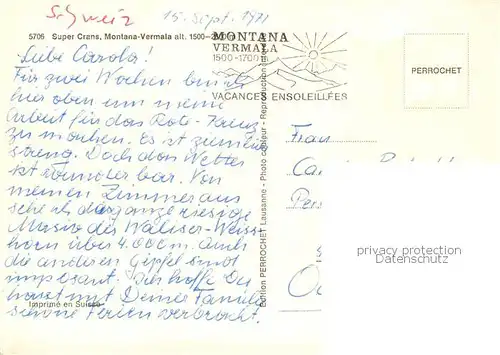 Schweiz
15. Sept. 1971
5706 Super Crans, Montana-Vermala alt. 1500-
MONTANA
VERMALA
1500-1700
VACANCES ENSOLEILLÉES
PERROCHET
Liebe Carola!
Für zwei Wochen bin ich
hier oben um meine
Arbeit für das Rote-Kreuz
zu machen. Es ist zumeist
streng. Doch das Wetter
ist wunderbar. Von
meinem Zimmer aus
sehe ich das ganze riesige
Massiv des Walliser-Weiss
horn über 4.000m. auch
die anderen Gipfel sind
imposant. Ich hoffe Du
hast mit Deiner Familie
schöne Ferien verbracht.
Imprimé en Suisse
Edition PERROCHET Lausanne - Photo couleur - Reproduction
Frau
Ca
Pers
privacy protection
Datenschutz